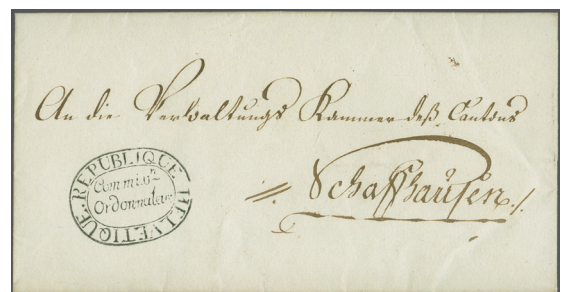 An die Verwaltungs Kammer deß Cantons
Schaffhausen ./.
REPUBLIQUE HELVETIQUE.
Commis.on
Ordonnateur